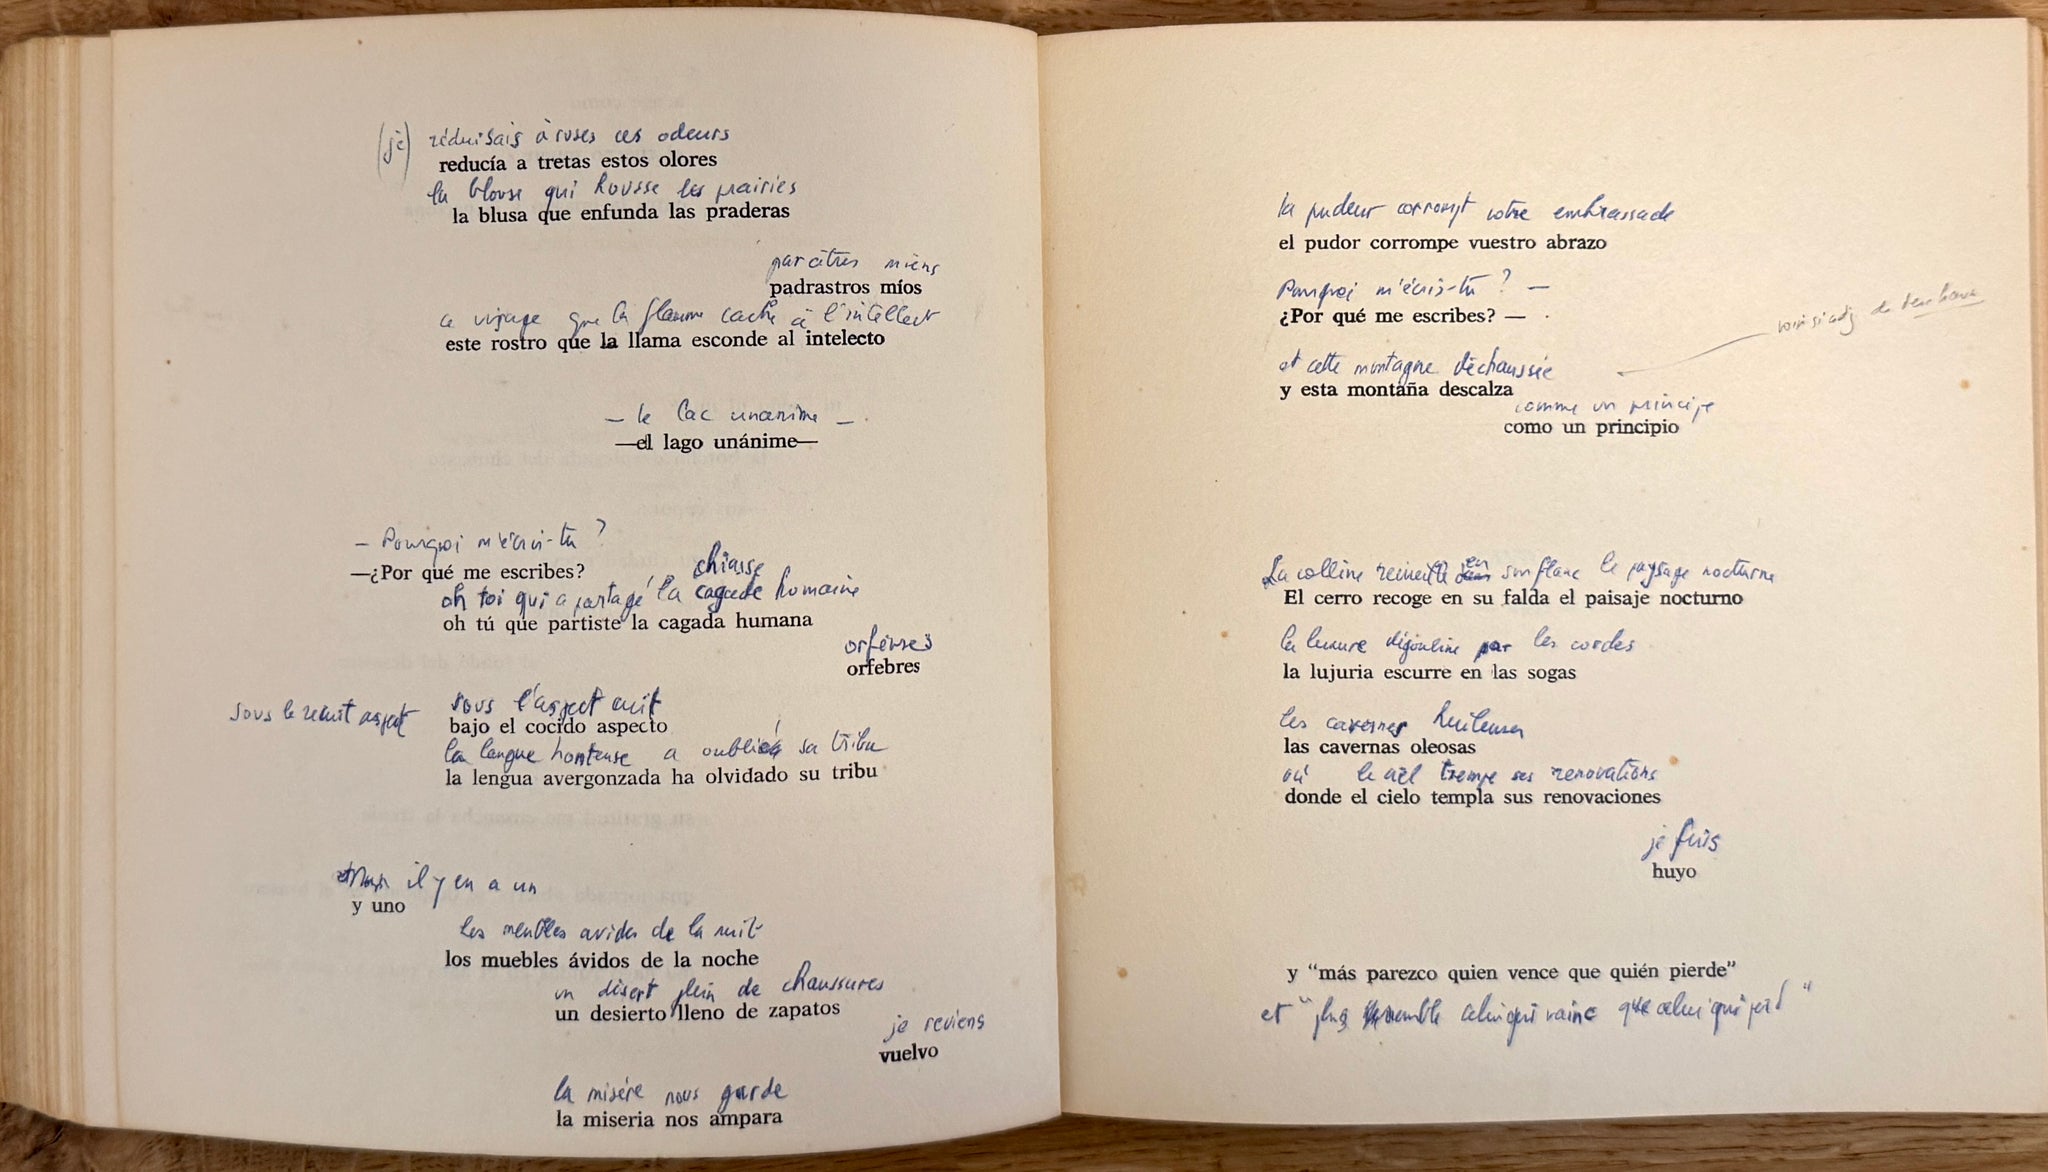 (je) réduisais à ruses ces odeurs
reducía a tretas estos olores
la blouse qui housse les prairies
la blusa que enfunda las praderas
parâtres miens
padrastros míos
ce visage que la flamme cache à l'intellect
este rostro que la llama esconde al intelecto
— le lac unanime —
—el lago unánime—
— Pourquoi m'écris-tu ?
—¿Por qué me escribes?
chiasse
oh toi qui a partagé la cagade humaine
oh tú que partiste la cagada humana
orfèvres
orfebres
sous le recuit aspect
sous l'aspect cuit
bajo el cocido aspecto
la langue honteuse a oublié sa tribu
la lengua avergonzada ha olvidado su tribu
il y en a un
y uno
les meubles avides de la nuit
los muebles ávidos de la noche
un désert plein de chaussures
un desierto lleno de zapatos
je reviens
vuelvo
la misère nous garde
la miseria nos ampara
la pudeur corrompt votre embrassade
el pudor corrompe vuestro abrazo
Pourquoi m'écris-tu ? —
¿Por qué me escribes? —
et cette montagne déchaussée
y esta montaña descalza
comme un principe
como un principio
La colline recueille en son flanc le paysage nocturne
El cerro recoge en su falda el paisaje nocturno
la luxure dégouline par les cordes
la lujuria escurre en las sogas
les cavernes huileuses
las cavernas oleosas
où le ciel trempe ses rénovations
donde el cielo templa sus renovaciones
je fuis
huyo
y “más parezco quien vence que quién pierde”
et " plus semble celui qui vainc que celui qui perd "